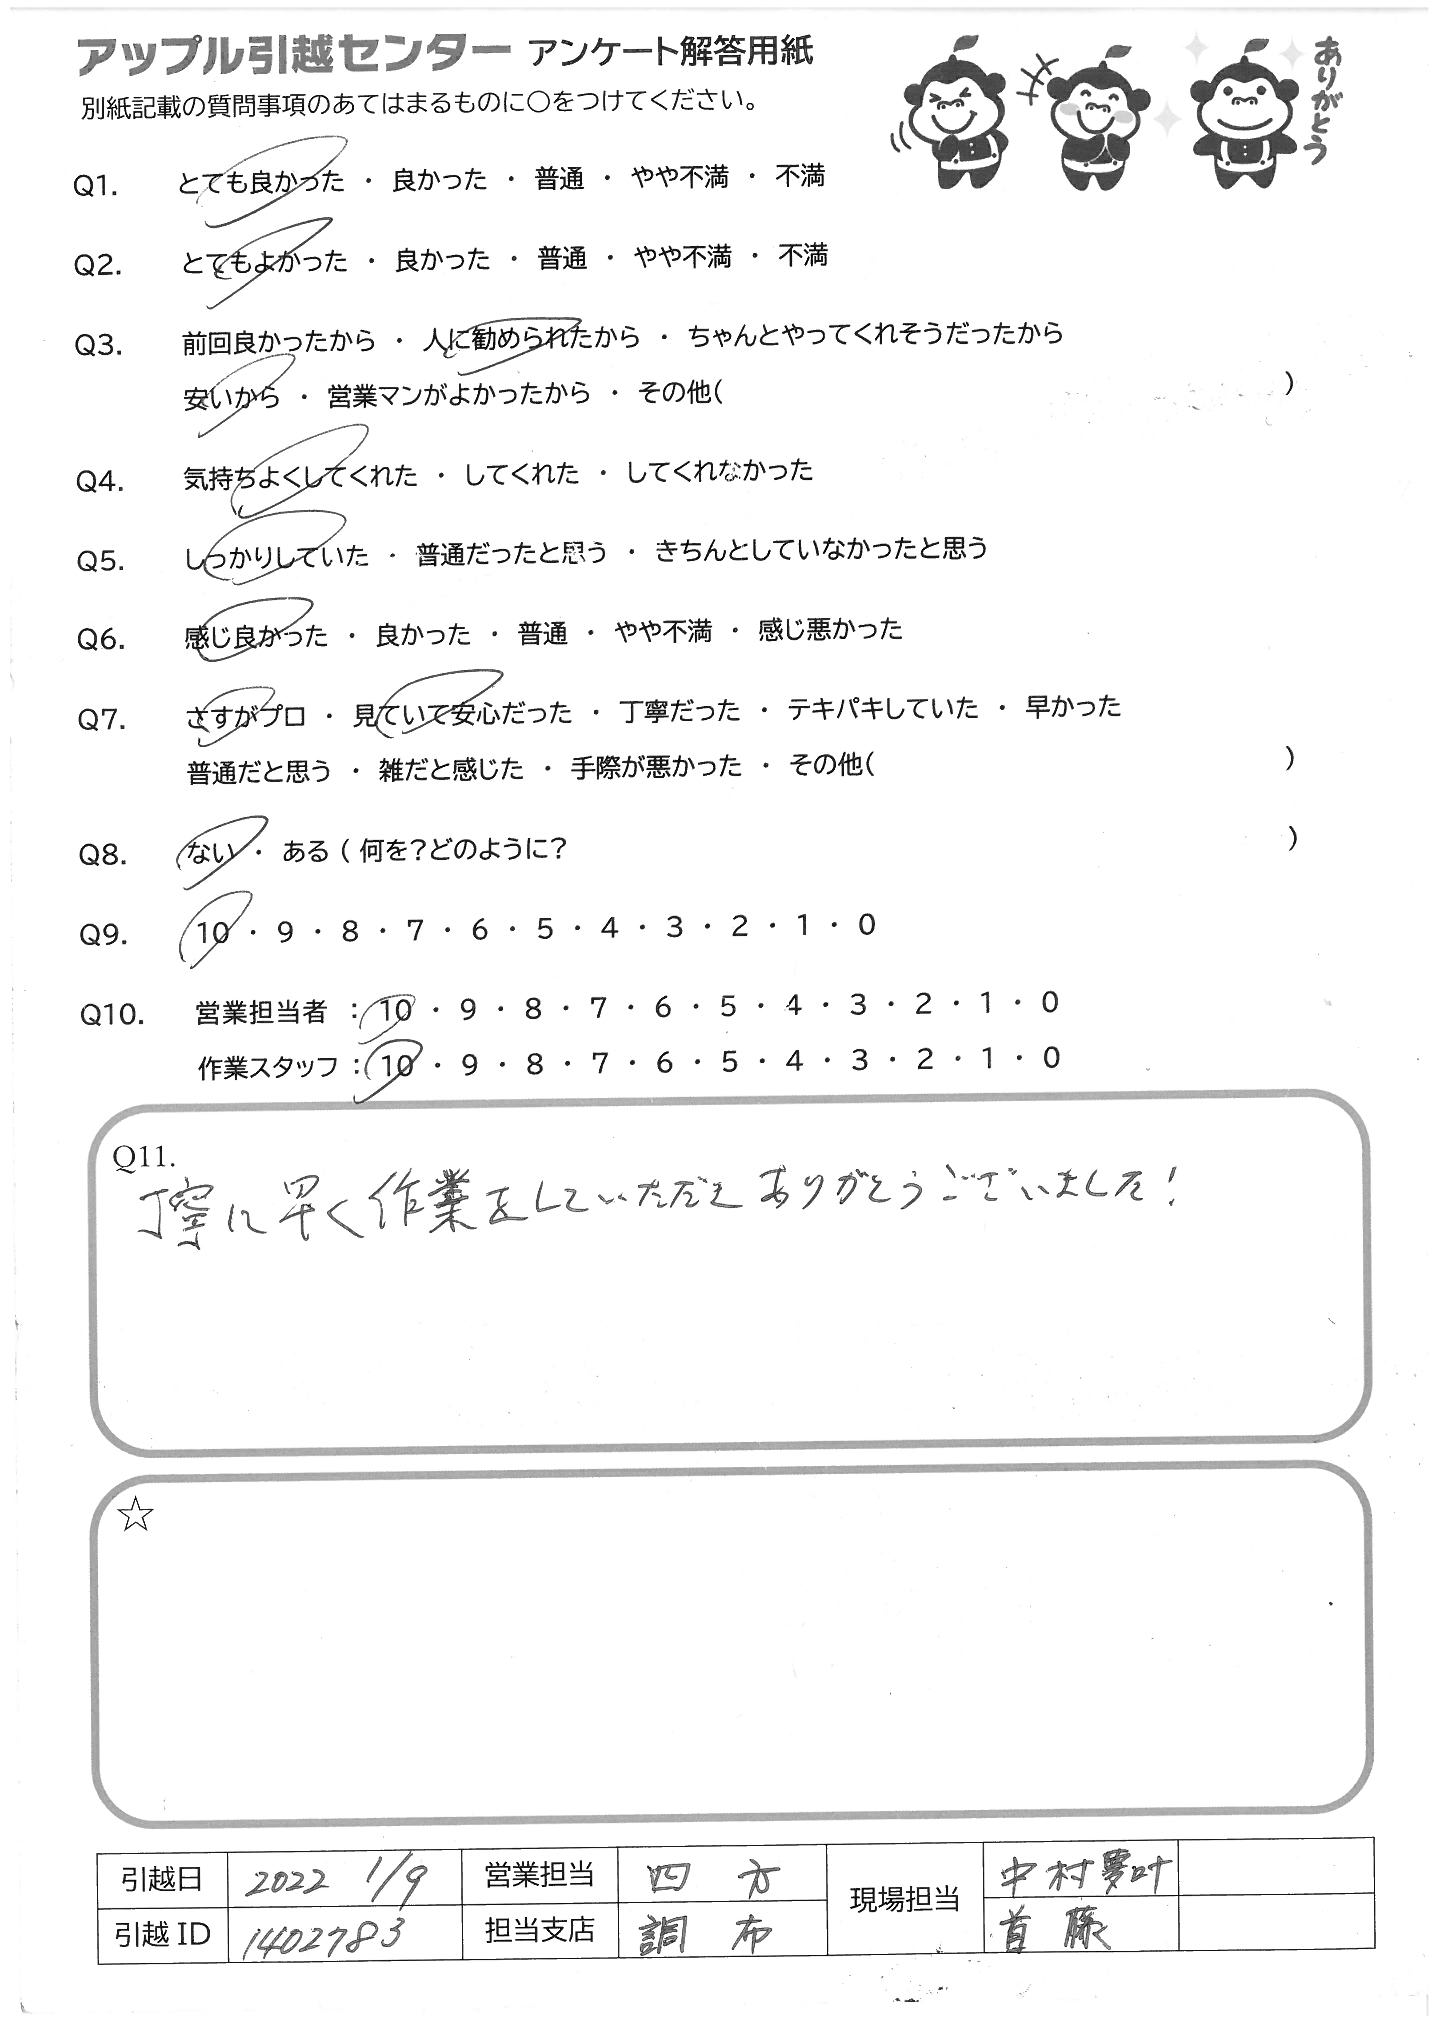 アップル引越センター アンケート解答用紙
ありがとう
別紙記載の質問事項のあてはまるものに○をつけてください。
Q1. とても良かった ・ 良かった ・ 普通 ・ やや不満 ・ 不満
Q2. とてもよかった ・ 良かった ・ 普通 ・ やや不満 ・ 不満
Q3. 前回良かったから ・ 人に勧められたから ・ ちゃんとやってくれそうだったから
安いから ・ 営業マンがよかったから ・ その他( )
Q4. 気持ちよくしてくれた ・ してくれた ・ してくれなかった
Q5. しっかりしていた ・ 普通だったと思う ・ きちんとしていなかったと思う
Q6. 感じ良かった ・ 良かった ・ 普通 ・ やや不満 ・ 感じ悪かった
Q7. さすがプロ ・ 見ていて安心だった ・ 丁寧だった ・ テキパキしていた ・ 早かった
普通だと思う ・ 雑だと感じた ・ 手際が悪かった ・ その他( )
Q8. ない ・ ある ( 何を？どのように？ )
Q9. 10 ・ 9 ・ 8 ・ 7 ・ 6 ・ 5 ・ 4 ・ 3 ・ 2 ・ 1 ・ 0
Q10. 営業担当者 : 10 ・ 9 ・ 8 ・ 7 ・ 6 ・ 5 ・ 4 ・ 3 ・ 2 ・ 1 ・ 0
作業スタッフ : 10 ・ 9 ・ 8 ・ 7 ・ 6 ・ 5 ・ 4 ・ 3 ・ 2 ・ 1 ・ 0
Q11.
丁寧に早く作業をしていただきありがとうございました！
☆
引越日 2022 1/9 営業担当 四方 現場担当 中村夢叶
引越ID 1402783 担当支店 調布 首藤